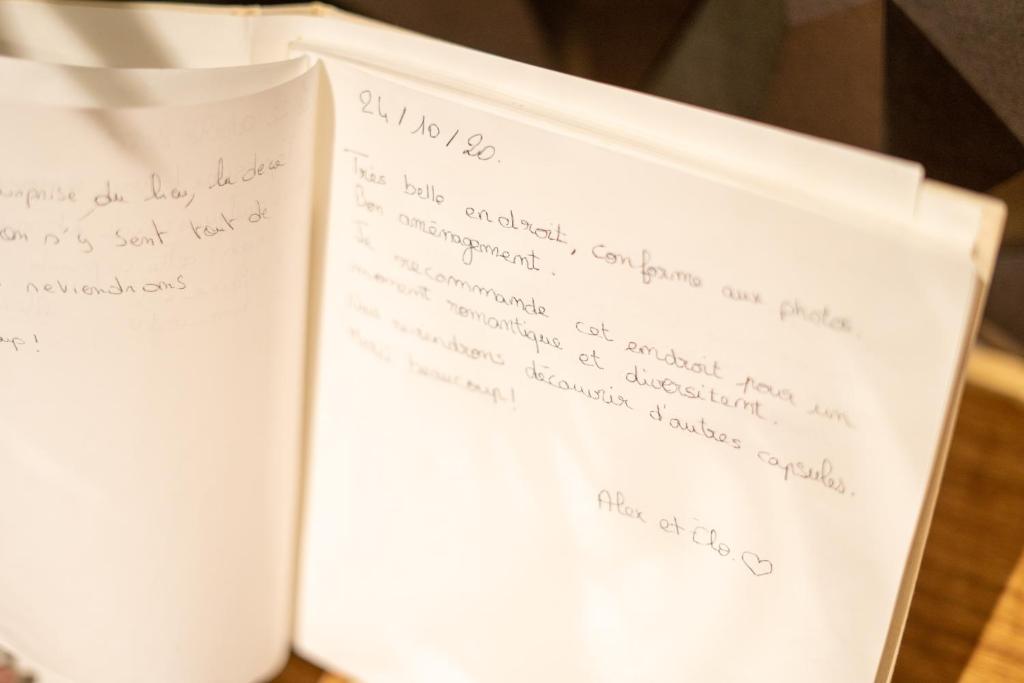 du lieu, la déco
s'y sent tout de
reviendrons
24/10/20.
Très belle endroit, conforme aux photos.
Bon aménagement.
Je recommande cet endroit pour un
moment romantique et diversitent.
Nous reviendrons découvrir d'autres capsules.
Merci beaucoup!
Alex et Clo. ♡